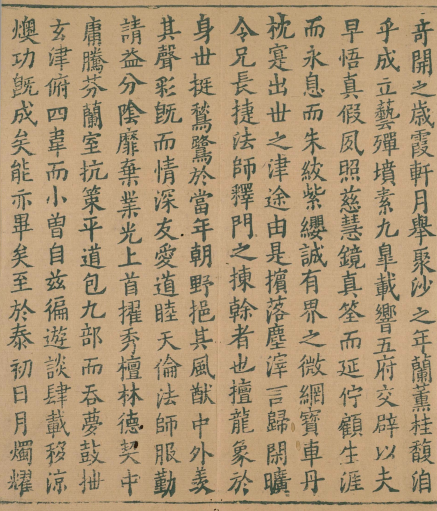 奇開之歲霞軒月舉聚沙之年蘭薰桂馥洎
乎成立藝殫墳素九皐載響五府交辟以夫
早悟真假夙照慈慧鏡真筌而延佇顧生涯
而永息而朱紱紫纓誠有界之微網寶車丹
枕寔出世之津途由是擯落塵滓言歸閑曠
令兄長捷法師釋門之揀榦者也檀龍象於
身世挺鶖鷺於當年朝野挹其風猷中外羨
其聲彩旣而情深友愛道睦天倫法師服勤
請益分陰靡棄業光上首擢秀檀林德契中
庸騰芬蘭室抗策平道包九部而吞夢鼓抴
玄津俯四韋而小曾自茲徧遊談肆載移涼
燠功旣成矣能亦畢矣至於泰初日月燭耀